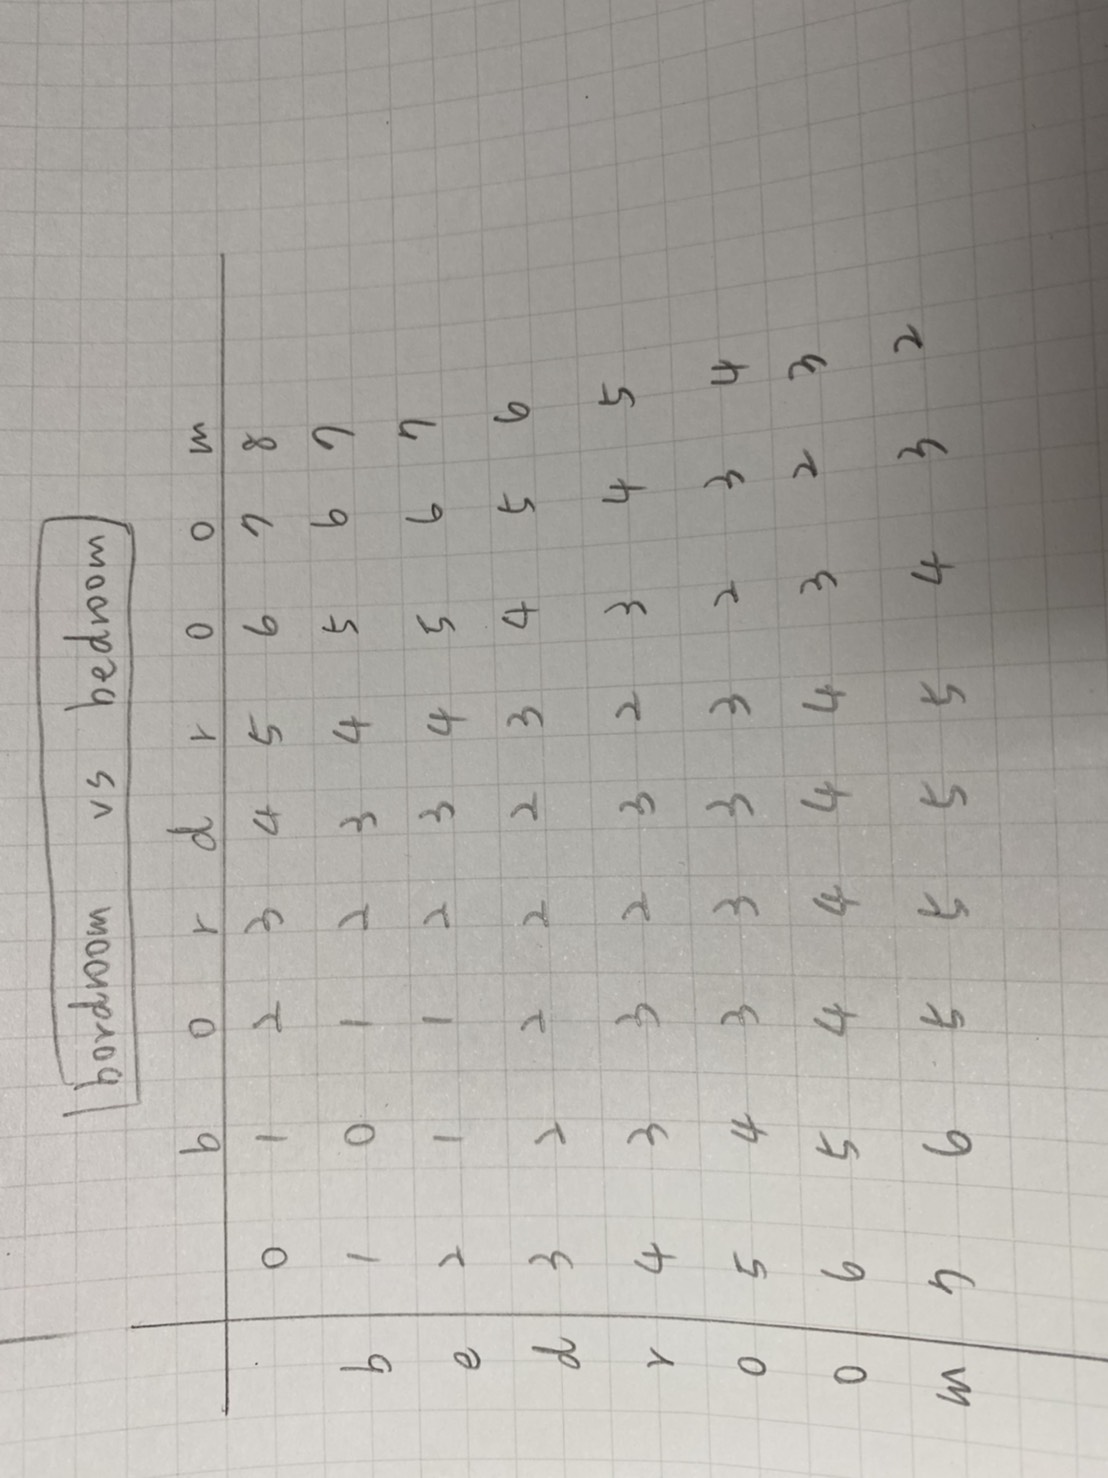 bordroom vs bedroom
b o r d r o o m
0 1 2 3 4 5 6 7 8
b 1 0 1 2 3 4 5 6 7
e 2 1 1 2 3 4 5 6 7
d 3 2 2 2 2 3 4 5 6
r 4 3 3 2 3 2 3 4 5
o 5 4 3 3 3 3 2 3 4
o 6 5 4 4 4 4 3 2 3
m 7 6 5 5 5 5 4 3 2